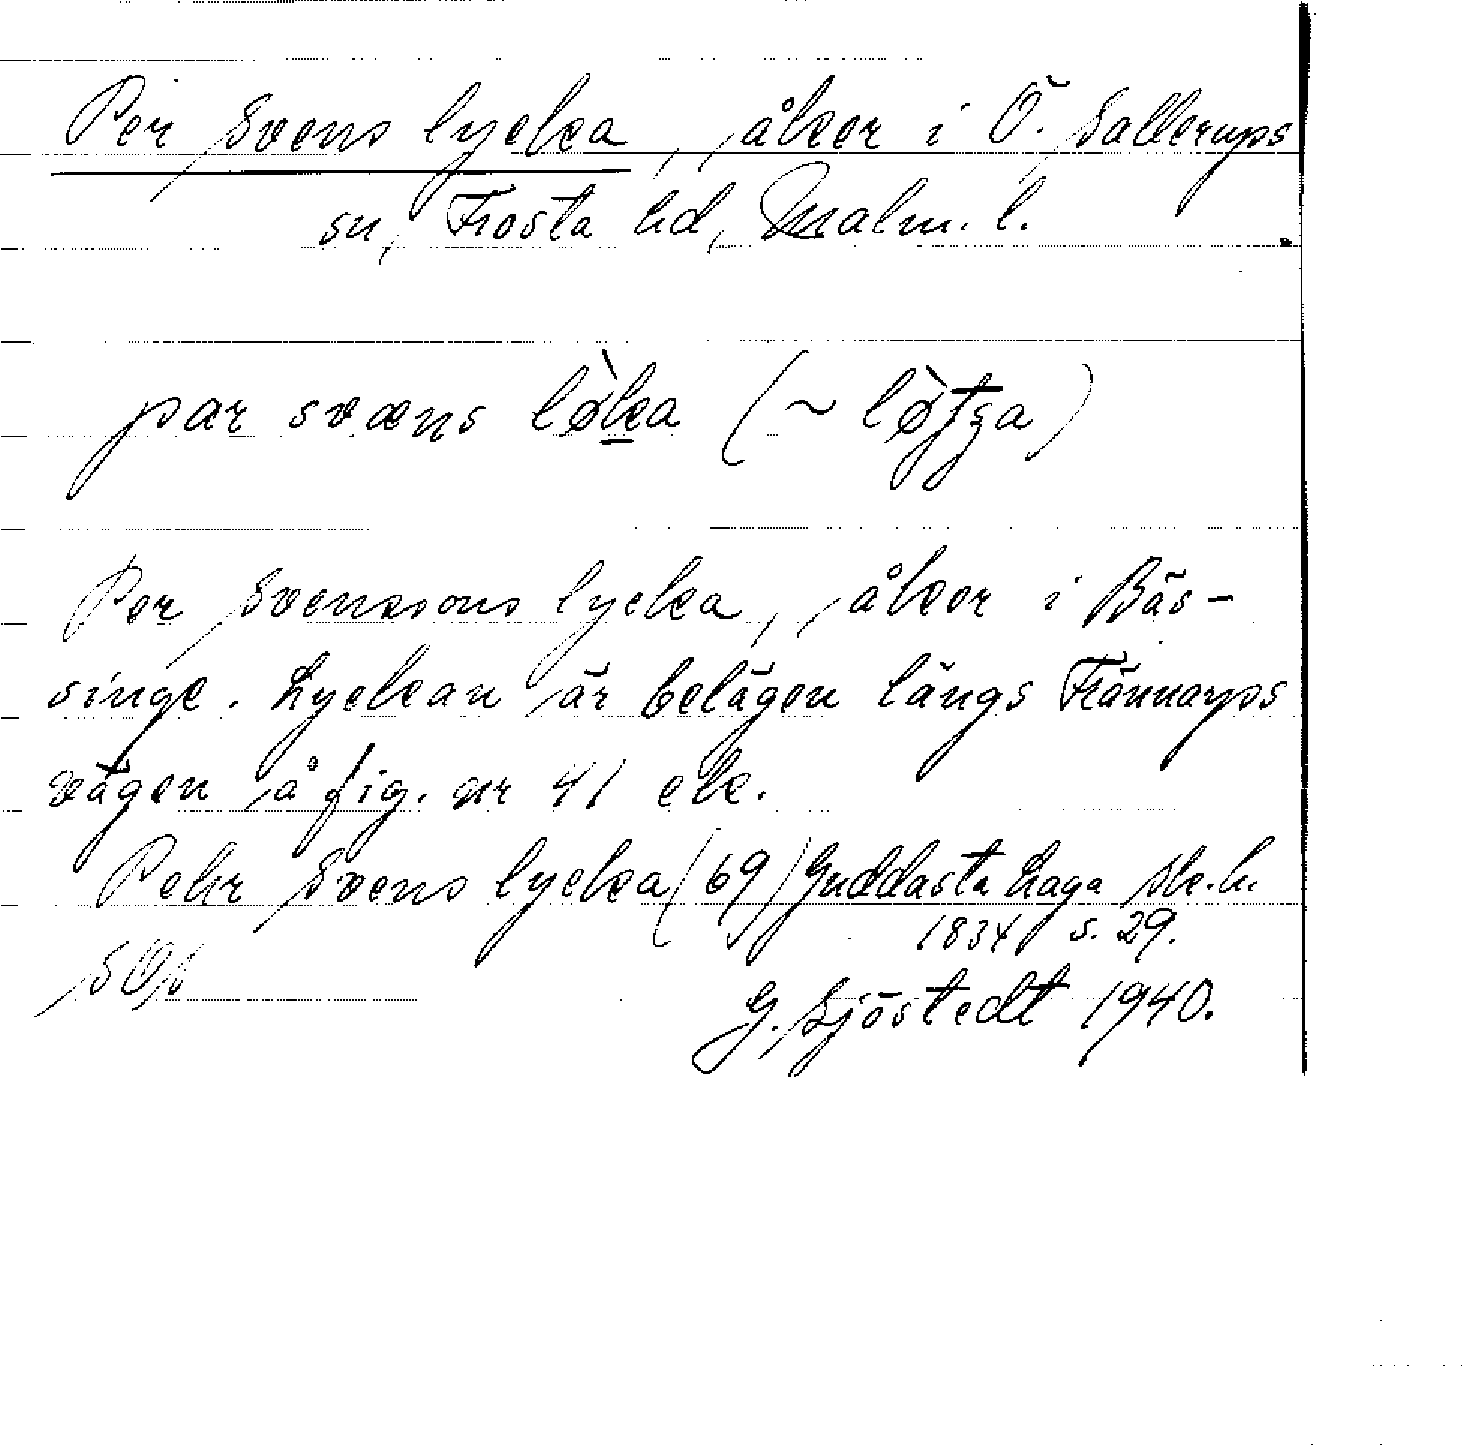 Per Svens lycka, åker i Ö. Sallerups
sn, Frosta hd, Malm. l.
par svæns lỳka (~ lø̀tʒa)
Per Svenssons lycka, åker i Bäs-
singe. Lyckan är belägen längs Frännarps
vägen å fig. nr 41 ek.
Pehr Svens lycka (69) Guddasta Laga sk.h.
1834 s. 29.
SOS
G. Sjöstedt 1940.